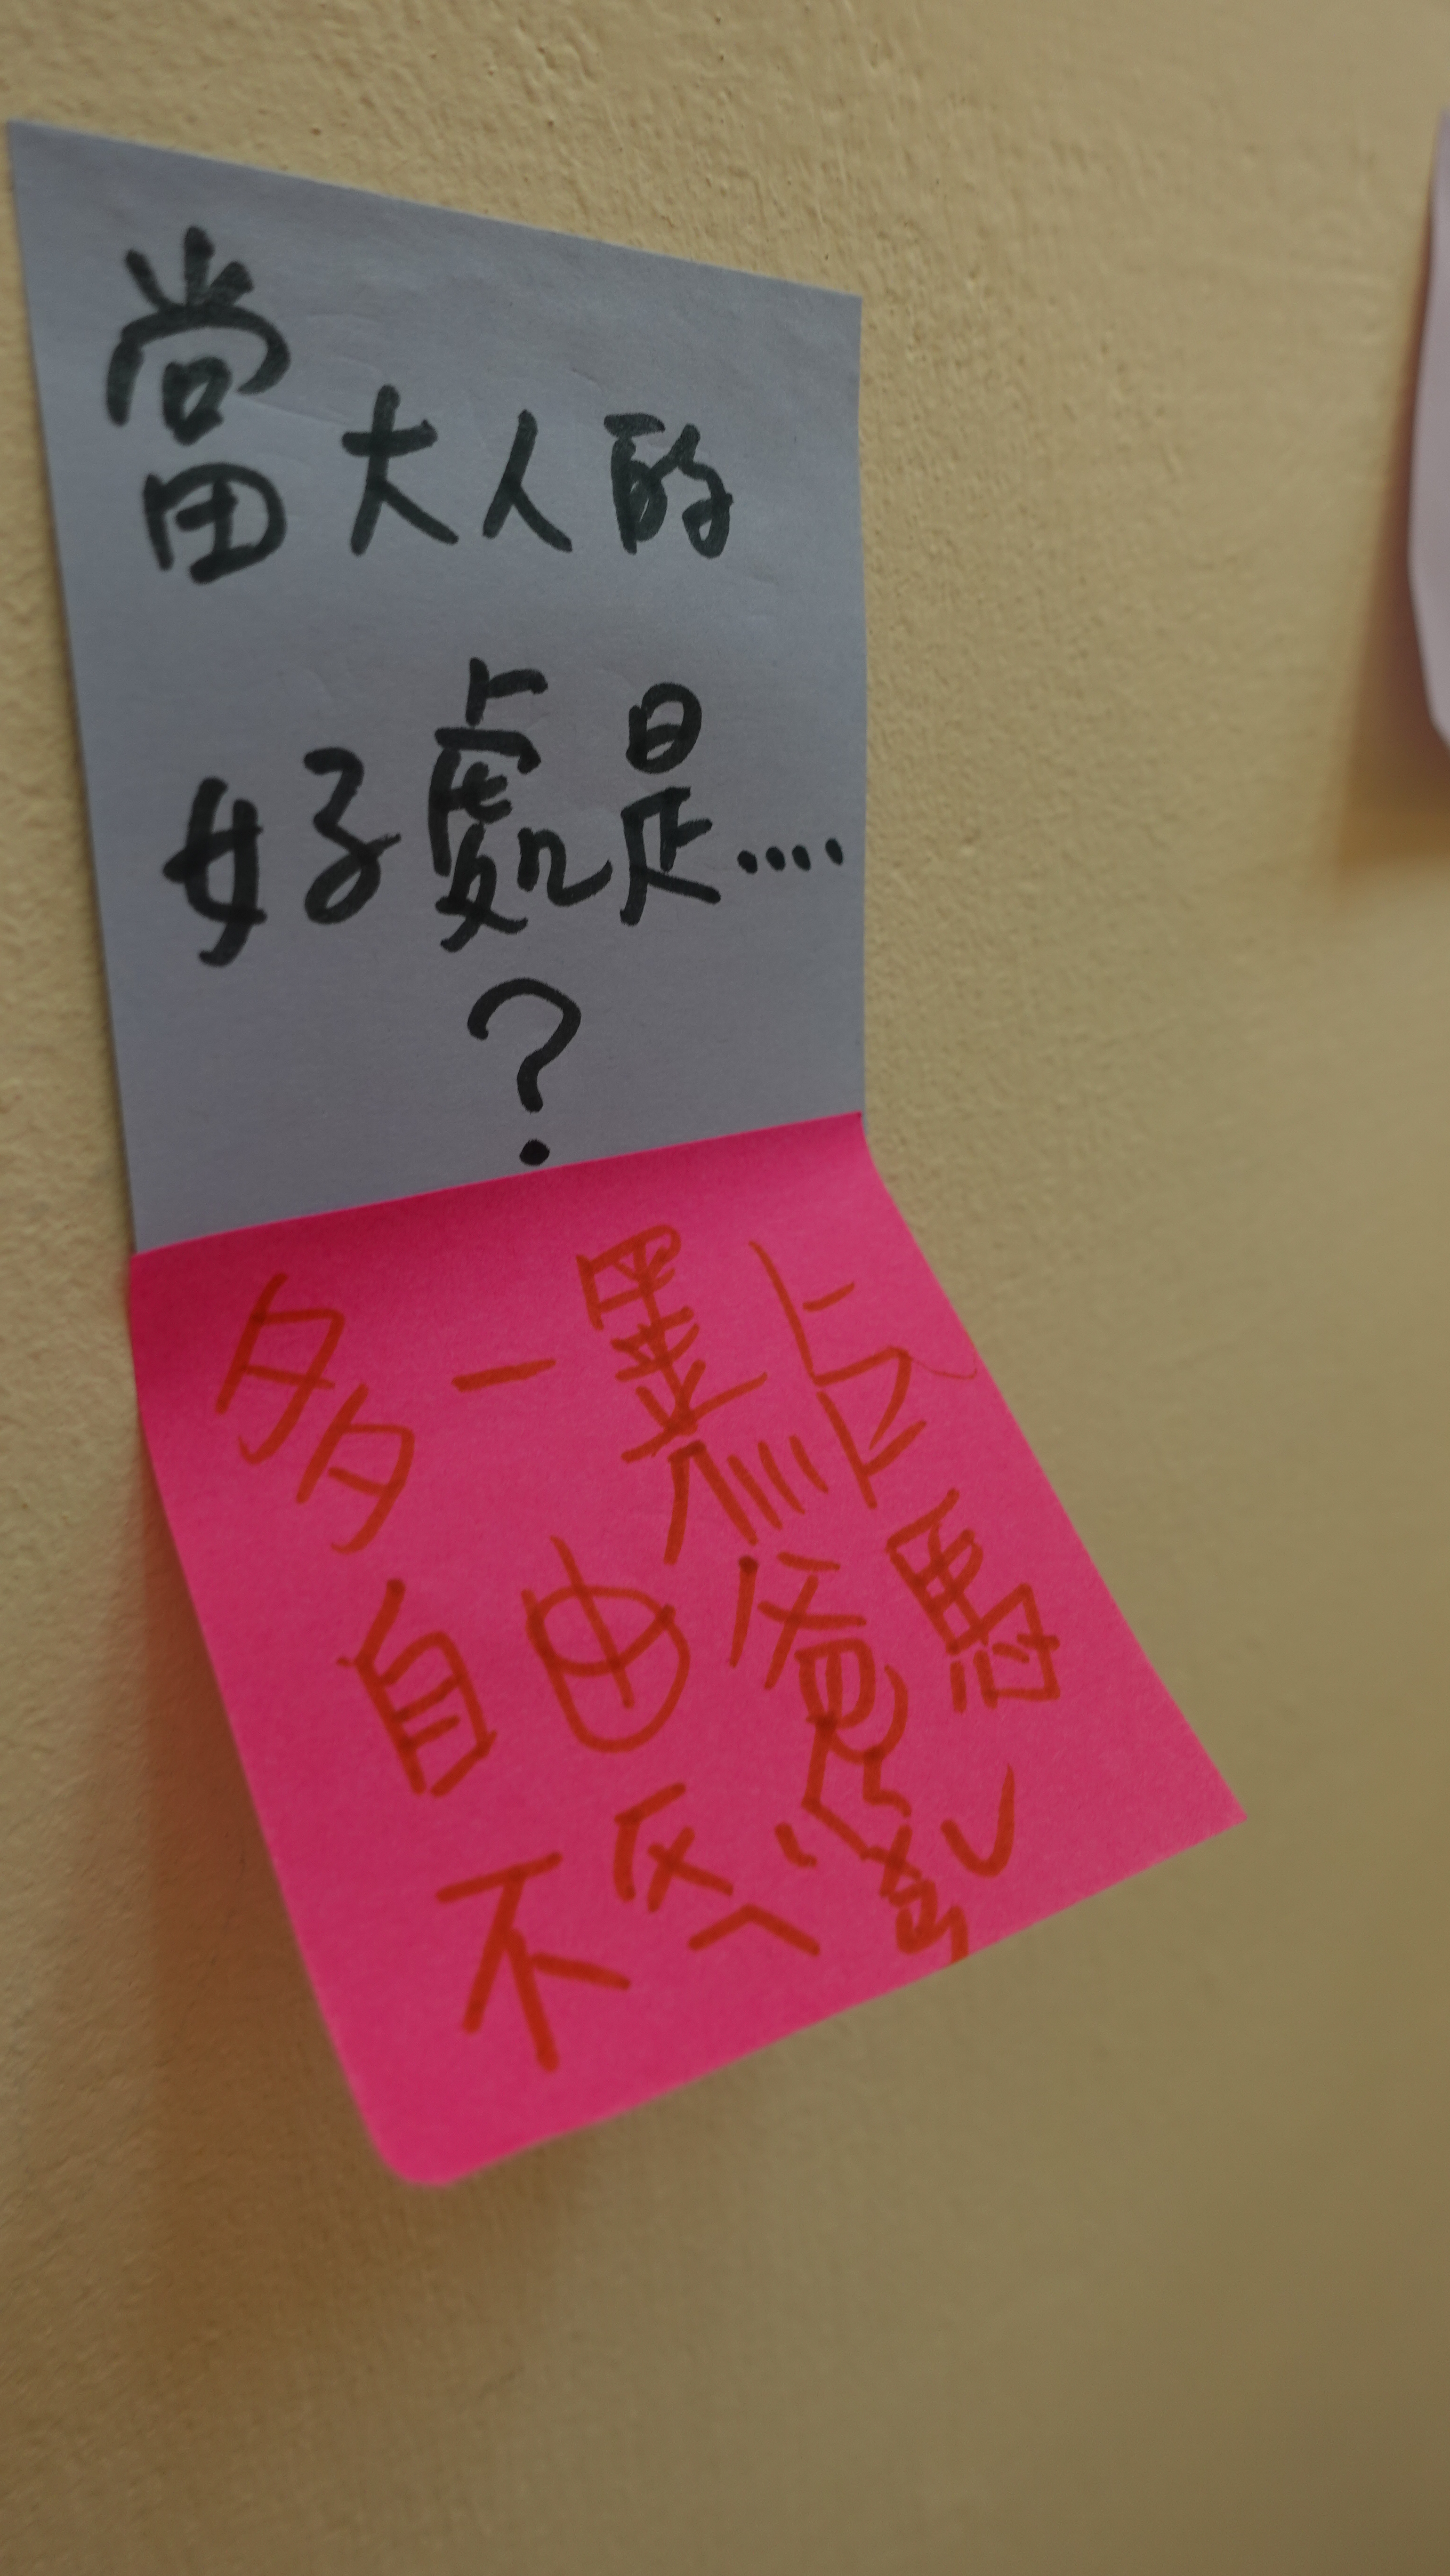 當大人的
好處是....
?
多一點
自由爸馬
不